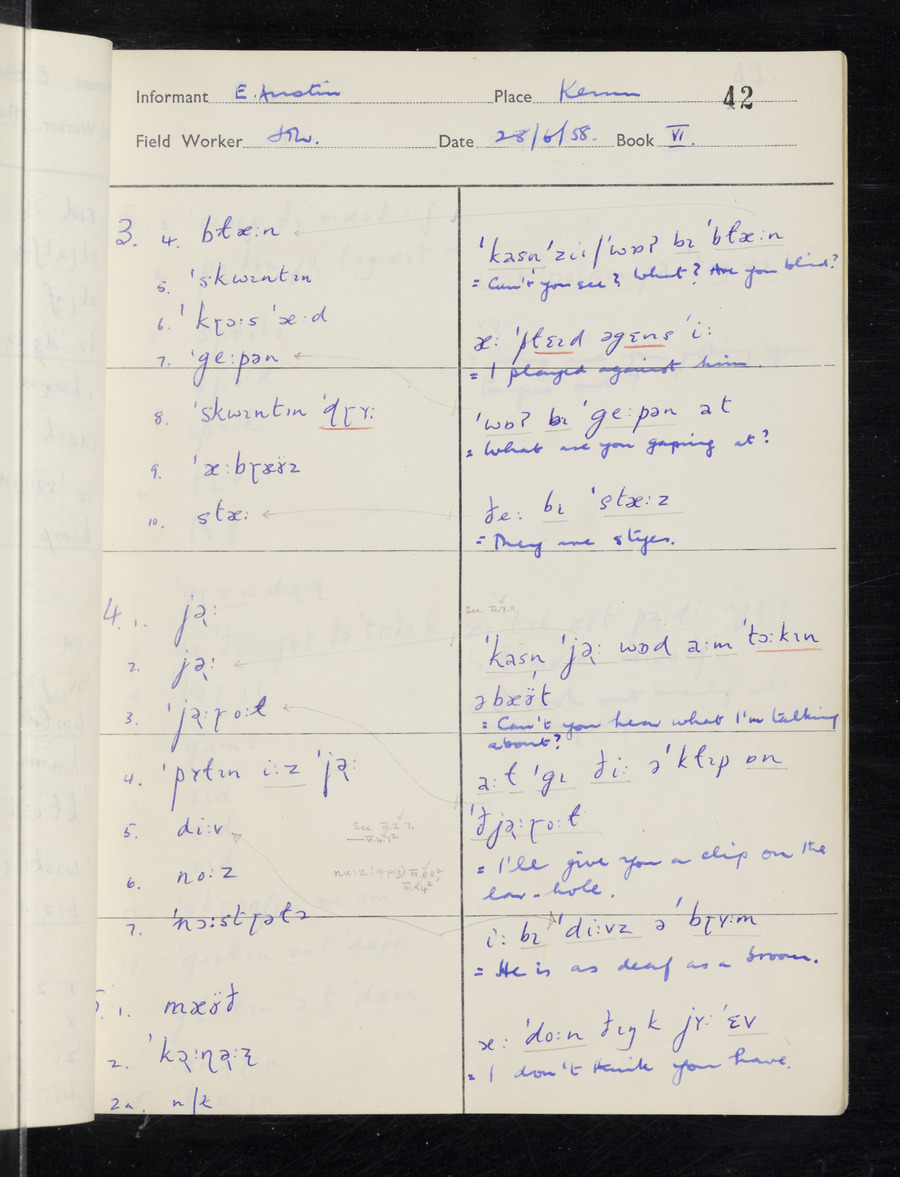 Informant E. Austin Place Kemm 42
Field Worker Date 28/6/58. Book VI.
3. 4. blæ:n
5. ˈskwɪntɪn
6. ˈkɽɔ:s ˈæ:d
7. ˈge:pən
8. ˈskwɪntɪn ˈdɽʏ:
9. ˈæ:bɽæÿz
10. stæ:
ˈkasn ˈzi:/ˈwɒʔ bɪ ˈblæ:n
= Can't you see? What? Are you blind?
æ: ˈplɛɪd əgɛns ˈi:
= I played against him.
ˈwɒʔ bɪ ˈge:pən at
= What are you gaping at?
ðe: bɪ ˈstæ:z
= They are styes.
4. 1. jə̢:
2. jə̢:
3. ˈjə̢:ɽo:ɫ
4. ˈpʏtɪn i:z ˈjə̢:
5. di:v
6. no:z
7. ˈnɔ:stɽəɫz
See VI.
ˈkasn ˈjə̢: wɒd a:m ˈtɔ:kɪn
əbæÿt
= Can't you hear what I'm talking
about?
a:ɫ ˈgɪ ði: əˈklɪp ɒn
ˈðjə̢:ɽo:ɫ
= I'll give you a clip on the
ear-hole.
i: bɪ ˈdi:vz ə ˈbɽʏ:m
= He is as deaf as a broom.
See III.2.7.
nu:z (of pig)
5. 1. mæÿð
2. ˈkə̢:ɳə̢:ʐ
2a. n/k
æ: ˈdo:n ðɪŋk jʏ: ˈɛv
= I don't think you have.